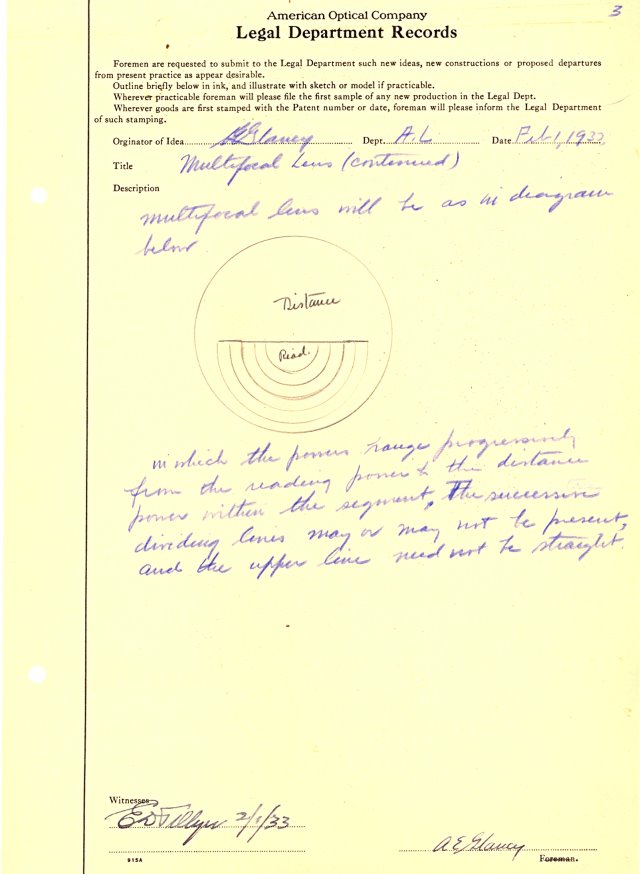 3
American Optical Company
Legal Department Records
Foremen are requested to submit to the Legal Department such new ideas, new constructions or proposed departures
from present practice as appear desirable.
Outline briefly below in ink, and illustrate with sketch or model if practicable.
Wherever practicable foreman will please file the first sample of any new production in the Legal Dept.
Wherever goods are first stamped with the Patent number or date, foreman will please inform the Legal Department
of such stamping.
Orginator of Idea Glancy Dept. A.L Date Feb 1, 1933
Title Multifocal Lens (continued)
Description
Multifocal lens will be as in diagram
below
Distance
Read.
in which the powers range progressively
from the reading power to the distance
power within the segment. The successive
dividing lines may or may not be present,
and the upper line need not be straight.
Witnesses
E D Tillyer 2/1/33
A E Glancy
Foreman.
915A